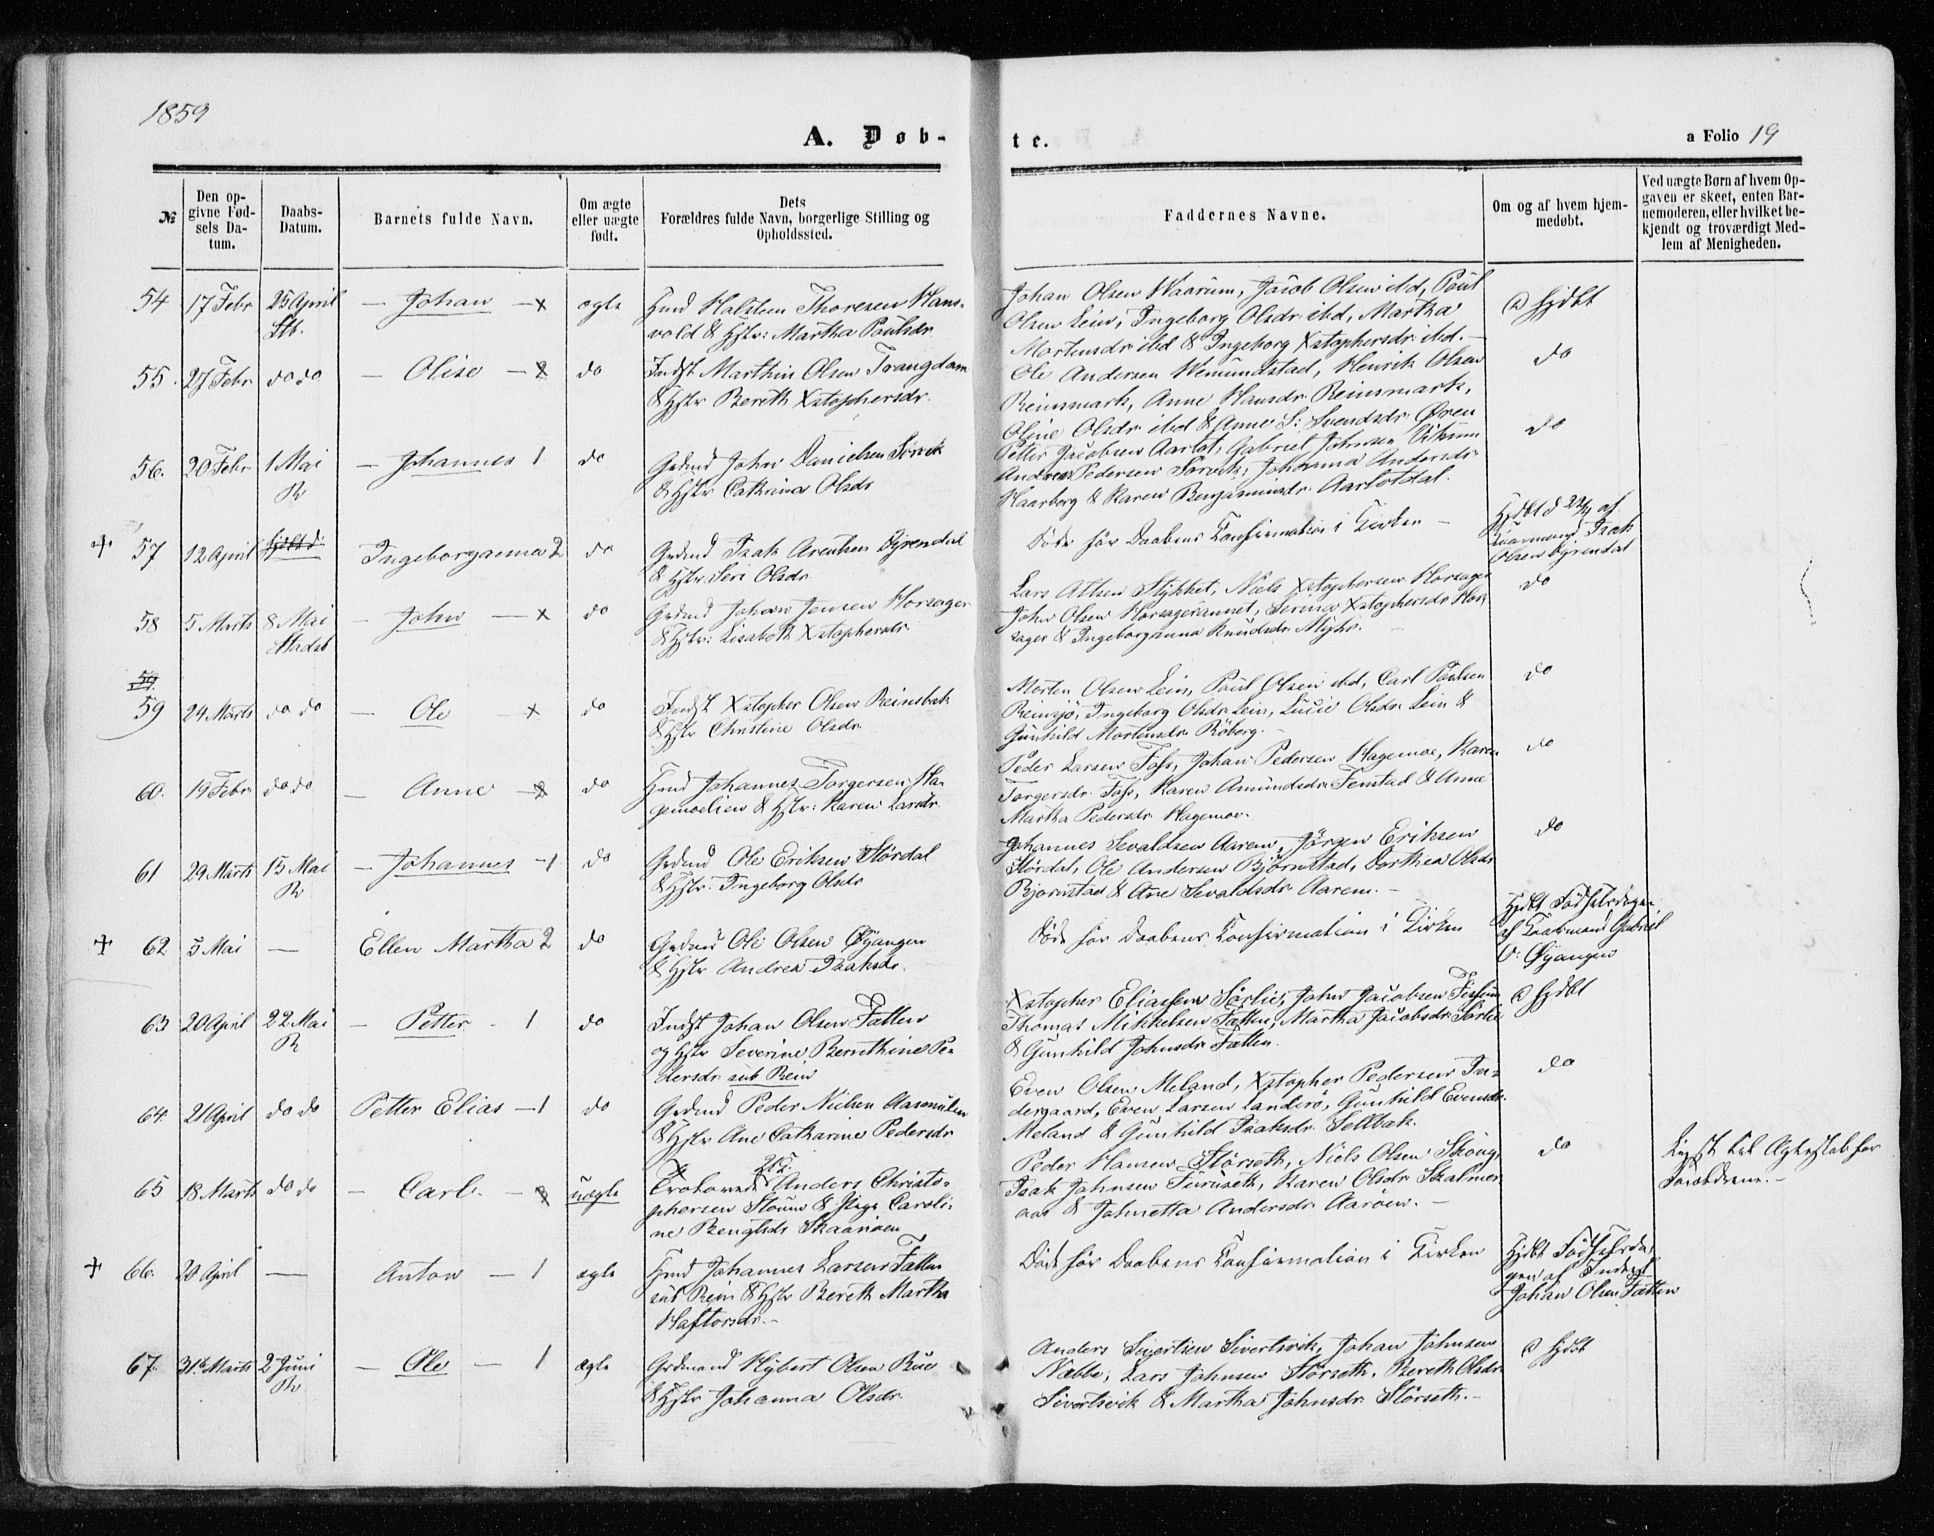 1859
A. Døb-
te.
a Folio 19
№
Den op-
givne Fød-
sels Da-
tum.
Daabs-
Datum.
Barnets fulde Navn.
Om ægte
eller uægte
født.
Dets
Forældres fulde Navn, borgerlige Stilling og
Opholdssted.
Faddernes Navne.
Om og af hvem hjem-
medøbt.
Ved uægte Børn af hvem Op-
gaven er skeet, enten Bar-
nemoderen, eller hvilket be-
kjendt og troværdigt Med-
lem af Menigheden.
54 17 Febr 25 April — Johan — x ægte
Hmd Halsten Thoresen Hans-
vold & Hstr: Martha Paulsdr
Johan Olsen Waarum, Jacob Olsen ibd, Paul
Olsen Lein, Ingeborg Olsdr ibd, Martha
Mortensdr ibd & Ingeborg Xstophersdr ibd. —
hjdbt
55. 27 Febr do do — Olise — 2 do
Indst Marthin Olsen Trangdam
& Hstr Bereth Xstophersdr.
Ole Andersen Wemundstad, Henrik Olsen
Reinsmark, Anne Hansdr Reinsmark,
Oline Olsdr ibd & Anne S: Svendsdr Øren
do
56. 20 Febr 1 Mai R — Johannes 1 do
Grdmd John Danielsen Sørvik
& Hstr Cathrina Olsdr
Petter Jacobsen Aarlot, Gabriel Johnsen
Andreas Pedersen Sørvik, Johanna Andersdr
Haarberg & Karen Benjaminsdr Aarlotdal.
do
+ 57 12 April hjdbt d: Ingeborganna 2 do
Grdmd Isak Arentsen Ogrendal
& Hstr Seri Olsdr
Døde før Daabens Confirmation i Kirken —
Hjdbt d 22/4 af
Isak
Olsen Ogrendal
58 5 Marts 8 Mai Stadsb — John — x do
Grdmd Johan Jensen Horsager
& Hstr: Lisabeth Xstophersdr.
Lars Olsen Stykket, Niels Xstophersen Horsager
John Olsen Horsagerannet, Serina Xstophersdr Hor-
sager & Ingeborganna Knudsdr Myhr.
do
59
59 24 Marts do do — Ole — x do
Indst Xstopher Olsen Reinsbak
& Hstr Christine Olsdr
Morten Olsen Lein, Paul Olsen ibd, Carl Paulsen
Reinsjø, Ingeborg Olsdr Lein, Lucie Olsdr Lein &
Gunhild Mortensdr Røberg. —
do
60. 19 Febr do do — Anne — 2 do
Hmd Johannes Torgersen Ha-
gemoelien & Hstr: Karen Larsdr.
Peder Larsen Foss, Johan Pedersen Hagemoe, Karen
Torgersdr Foss, Karen Amundsdr Fenstad & Anne
Martha Pedersdr Hagemoe.
do
61 29 Marts 15 Mai R — Johannes — 1 do
Grdmd Ole Eriksen Størdal
& Hstr. Ingeborg Olsdr
Johannes Sevaldsen Aarem, Jørgen Eriksen
Størdal, Ole Andersen Bjørnstad, Dorthea Olsdr
Bjørnstad & Ane Sevaldsdr Aarem. —
do
+ 62 5 Mai — Ellen Martha 2 do
Grdmd Ole Olsen Øyangen
& Hstr Andrea Isaksdr.
Døde før Daabens Confirmation i Kirken
Hjdbt Fødselsdagen
af Gaarmand Gabriel
O: Øyangen
63 20 April 22 Mai R — Petter — 1 do
Indst Johan Olsen Fætten
og Hstr Severine Bernthine Pe-
dersdr sub Rein
Xstopher Eliassen Sørlie, John Jacobsen
Thomas Mikkelsen Fætten, Martha Jacobsdr Sørlie
& Gunhild Johnsdr Fætten.
hjdbt
64. 21 April do do Petter Elias — 1 do
Grdmd Peder Nielsen Aasmulen
& Hstr Ane Catharine Pedersdr
Even Olsen Meland, Xstopher Pedersen In-
dergaard, Even Larsen Landrø, Gunhild Evensdr
Meland & Gunhild Isaksdr Sellbak.
do
65 18 Marts do do — Carl — 2 uægte
Trolovede Anders Christo-
phersen Stoum & Pige Caroli-
ne Bengtsdr Skaanøen
Peder Hansen Størseth, Niels Olsen Skoug,
Isak Johnsen Furuseth, Karen Olsdr Skalmer-
aas & Johnetta Andersdr Aarøen. —
do
Lyst til Ægteskab før
Daabdagen. —
+ 66. 20 April — Anton — 1 ægte
Hmd Johannes Larsen Fætten
sub Rein & Hstr Bereth Martha
Haftorsdr. —
Døde før Daabens Confirmation i Kirken
Hjdbt Fødselsda-
gen af Inderst
Johan Olsen Fætten
67. 31te Marts 2 Juni R — Ole — 1 ægte
Grdmand Hybert Olsen Rue
& Hstr Johanna Olsdr
Anders Sivertsen Sivertsvik, Johan Johnsen
Næbbe, Lars Johnsen Størseth, Bereth Olsdr
Sivertsvik & Martha Johnsdr Størseth. —
hjdbt